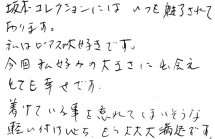 坂本コレクションには いつも魅了されて
おります。
私はピアスが大好きです。
今回 私好みの大きさに出会え
とても幸せです。
着けている事を忘れてしまいそうな
軽い付け心地、もう大大大満足です。